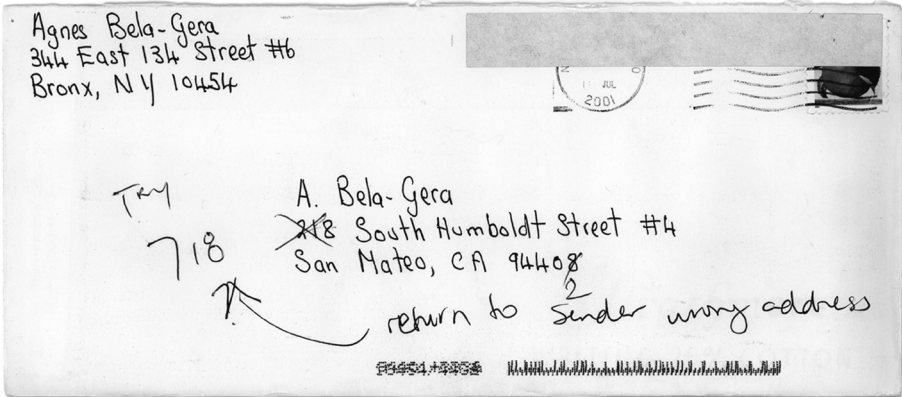 Agnes Bela-Gera
344 East 134 Street #6
Bronx, NY 10454
11 JUL
2001
TRY
718
A. Bela-Gera
218 South Humboldt Street #4
San Mateo, CA 94408
2
return to sender wrong address